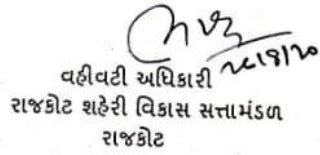 વહીવટી અધિકારી
રાજકોટ શહેરી વિકાસ સત્તામંડળ
રાજકોટ